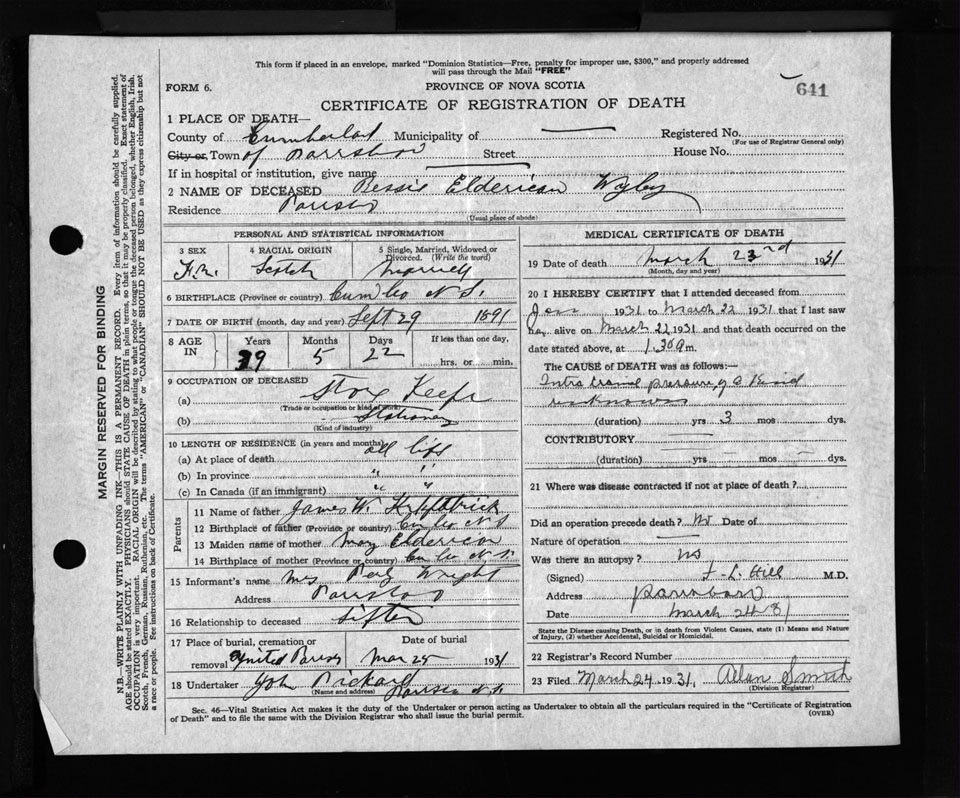 This form if placed in an envelope, marked "Dominion Statistics—Free, penalty for improper use, $300," and properly addressed
will pass through the Mail "FREE"
FORM 6.
PROVINCE OF NOVA SCOTIA
641
CERTIFICATE OF REGISTRATION OF DEATH
1 PLACE OF DEATH—
County of Cumberland Municipality of — Registered No.
(For use of Registrar General only)
City or Town of Parrsboro Street House No.
If in hospital or institution, give name —
2 NAME OF DECEASED Bessie Elderkin Wyley
Residence Parrsboro
(Usual place of abode)
PERSONAL AND STATISTICAL INFORMATION
3 SEX 4 RACIAL ORIGIN 5 Single, Married, Widowed or
Divorced. (Write the word)
Scotch Married
6 BIRTHPLACE (Province or country) Cumb Co N S.
7 DATE OF BIRTH (month, day and year) Sept 29 1891
8 AGE IN Years Months Days If less than one day,
39 5 22 hrs. or min.
9 OCCUPATION OF DECEASED
(a) Store Keeper
(Trade or occupation or kind of work)
(b) Stationery
(Kind of industry)
10 LENGTH OF RESIDENCE (in years and months)
(a) At place of death all life
(b) In province " "
(c) In Canada (if an immigrant) " "
Parents
11 Name of father James W. Kirkpatrick
12 Birthplace of father (Province or country) Cumb Co N S
13 Maiden name of mother Mary Elderkin
14 Birthplace of mother (Province or country) Cumb Co N S.
15 Informant's name Mrs Wright
Address Parrsboro
16 Relationship to deceased Sister
17 Place of burial, cremation or Date of burial
removal Mar 25 1931
18 Undertaker Pickard
(Name and address)
MEDICAL CERTIFICATE OF DEATH
19 Date of death March 23rd 1931
(Month, day and year)
20 I HEREBY CERTIFY that I attended deceased from
1931 to March 22 1931 that I last saw
her alive on March 22 1931 and that death occurred on the
date stated above, at 1.30 a m.
The CAUSE OF DEATH was as follows:—
Intra cranial pressure of a Kind
unknown
(duration) yrs 3 mos dys.
CONTRIBUTORY —
(duration) — yrs — mos — dys.
21 Where was disease contracted if not at place of death?
Did an operation precede death? No Date of
Nature of operation —
Was there an autopsy? No
(Signed) F. L. Hill M.D.
Address Parrsboro
Date March 24 31
State the Disease causing Death, or in death from Violent Causes, state (1) Means and Nature
of Injury, (2) whether Accidental, Suicidal or Homicidal.
22 Registrar's Record Number
23 Filed March 24 1931. Allan Smith
(Division Registrar)
Sec. 46—Vital Statistics Act makes it duty of the Undertaker or person acting as Undertaker to obtain all the particulars required in the "Certificate of Registration
of Death" and to file the same with the Division Registrar who shall issue the burial permit.
(OVER)
MARGIN RESERVED FOR BINDING
N.B.—WRITE PLAINLY WITH UNFADING INK—THIS IS A PERMANENT RECORD. Every item of information should be carefully supplied.
AGE should be stated EXACTLY. PHYSICIANS should STATE CAUSE OF DEATH in plain terms, so that it may be properly classified. Exact statement of
OCCUPATION is very important. RACIAL ORIGIN will be described by stating to what people or tongue the deceased person belonged, whether English, Irish,
Scotch, French, German, Russian, Ruthenian, etc. The terms "AMERICAN" or "CANADIAN" SHOULD NOT BE USED as they express citizenship but not
a race or people. See instructions on back of Certificate.